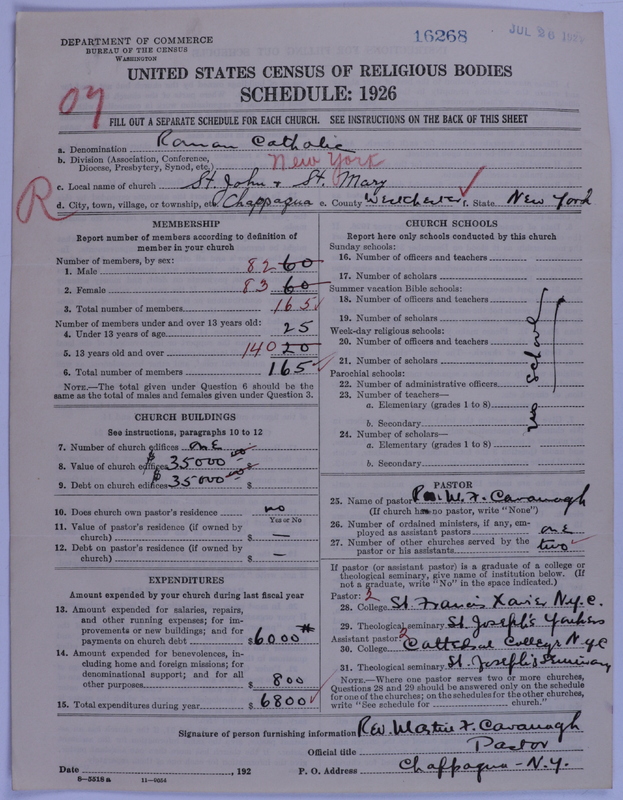 DEPARTMENT OF COMMERCE
BUREAU OF THE CENSUS
WASHINGTON
16268
JUL 26
UNITED STATES CENSUS OF RELIGIOUS BODIES
SCHEDULE: 1926
07
FILL OUT A SEPARATE SCHEDULE FOR EACH CHURCH. SEE INSTRUCTIONS ON THE BACK OF THIS SHEET
a. Denomination Roman Catholic
b. Division (Association, Conference, Diocese, Presbytery, Synod, etc.) New York
c. Local name of church St. John & St. Mary
R
d. City, town, village, or township, etc. Chappaqua e. County Westchester f. State New York
MEMBERSHIP
Report number of members according to definition of
member in your church
Number of members, by sex:
1. Male 82 60
2. Female 83 60
3. Total number of members 165
Number of members under and over 13 years old:
4. Under 13 years of age 25
5. 13 years old and over 140 20
6. Total number of members 165
NOTE.—The total given under Question 6 should be
same as the total of males and females given under Question 3.
CHURCH BUILDINGS
See instructions, paragraphs 10 to 12
7. Number of church edifices one
8. Value of church edifices $35000 00 $
9. Debt on church edifices $35000 00 $
10. Does church own pastor's residence no
Yes or No
11. Value of pastor's residence (if owned by
church) $ —
12. Debt on pastor's residence (if owned by
church) $ —
EXPENDITURES
Amount expended by your church during last fiscal year
13. Amount expended for salaries, repairs,
and other running expenses; for im-
provements or new buildings; and for
payments on church debt $ 6000
14. Amount expended for benevolences, in-
cluding home and foreign missions; for
denominational support; and for all
other purposes $ 800
15. Total expenditures during year $ 6800
CHURCH SCHOOLS
Report here only schools conducted by this church
Sunday schools:
16. Number of officers and teachers
17. Number of scholars
Summer vacation Bible schools:
18. Number of officers and teachers
19. Number of scholars
Week-day religious schools:
20. Number of officers and teachers
21. Number of scholars
Parochial schools:
22. Number of administrative officers
23. Number of teachers—
a. Elementary (grades 1 to 8)
b. Secondary
24. Number of scholars—
a. Elementary (grades 1 to 8)
b. Secondary
no school
PASTOR
25. Name of pastor Rev. M. F. Cavanagh
(If church has no pastor, write "None")
26. Number of ordained ministers, if any, em-
ployed as assistant pastors one
27. Number of other churches served by the
pastor or his assistants two
If pastor (or assistant pastor) is a graduate of a college or
theological seminary, give name of institution below. (If
not a graduate, write "No" in the space indicated.)
Pastor: 2
28. College St. Francis Xavier N.Y.C.
29. Theological seminary St. Joseph's Yonkers
Assistant pastor: 2
30. College Cathedral College N.Y.C
31. Theological seminary St. Joseph's Seminary
NOTE.—Where one pastor serves two or more churches,
Questions 28 and 29 should be answered only on the schedule
for one of the churches; on the schedules for the other churches,
write "See schedule for church."
Signature of person furnishing information Rev. Martin F. Cavanagh
Official title Pastor
Date , 192 P. O. Address Chappaqua - N.Y.
8—5518a 11—9054